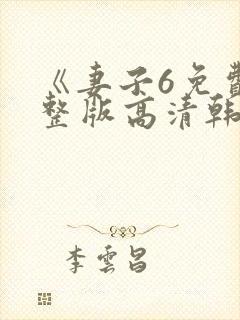 《妻子6免费
整版高清韩
李雲昌